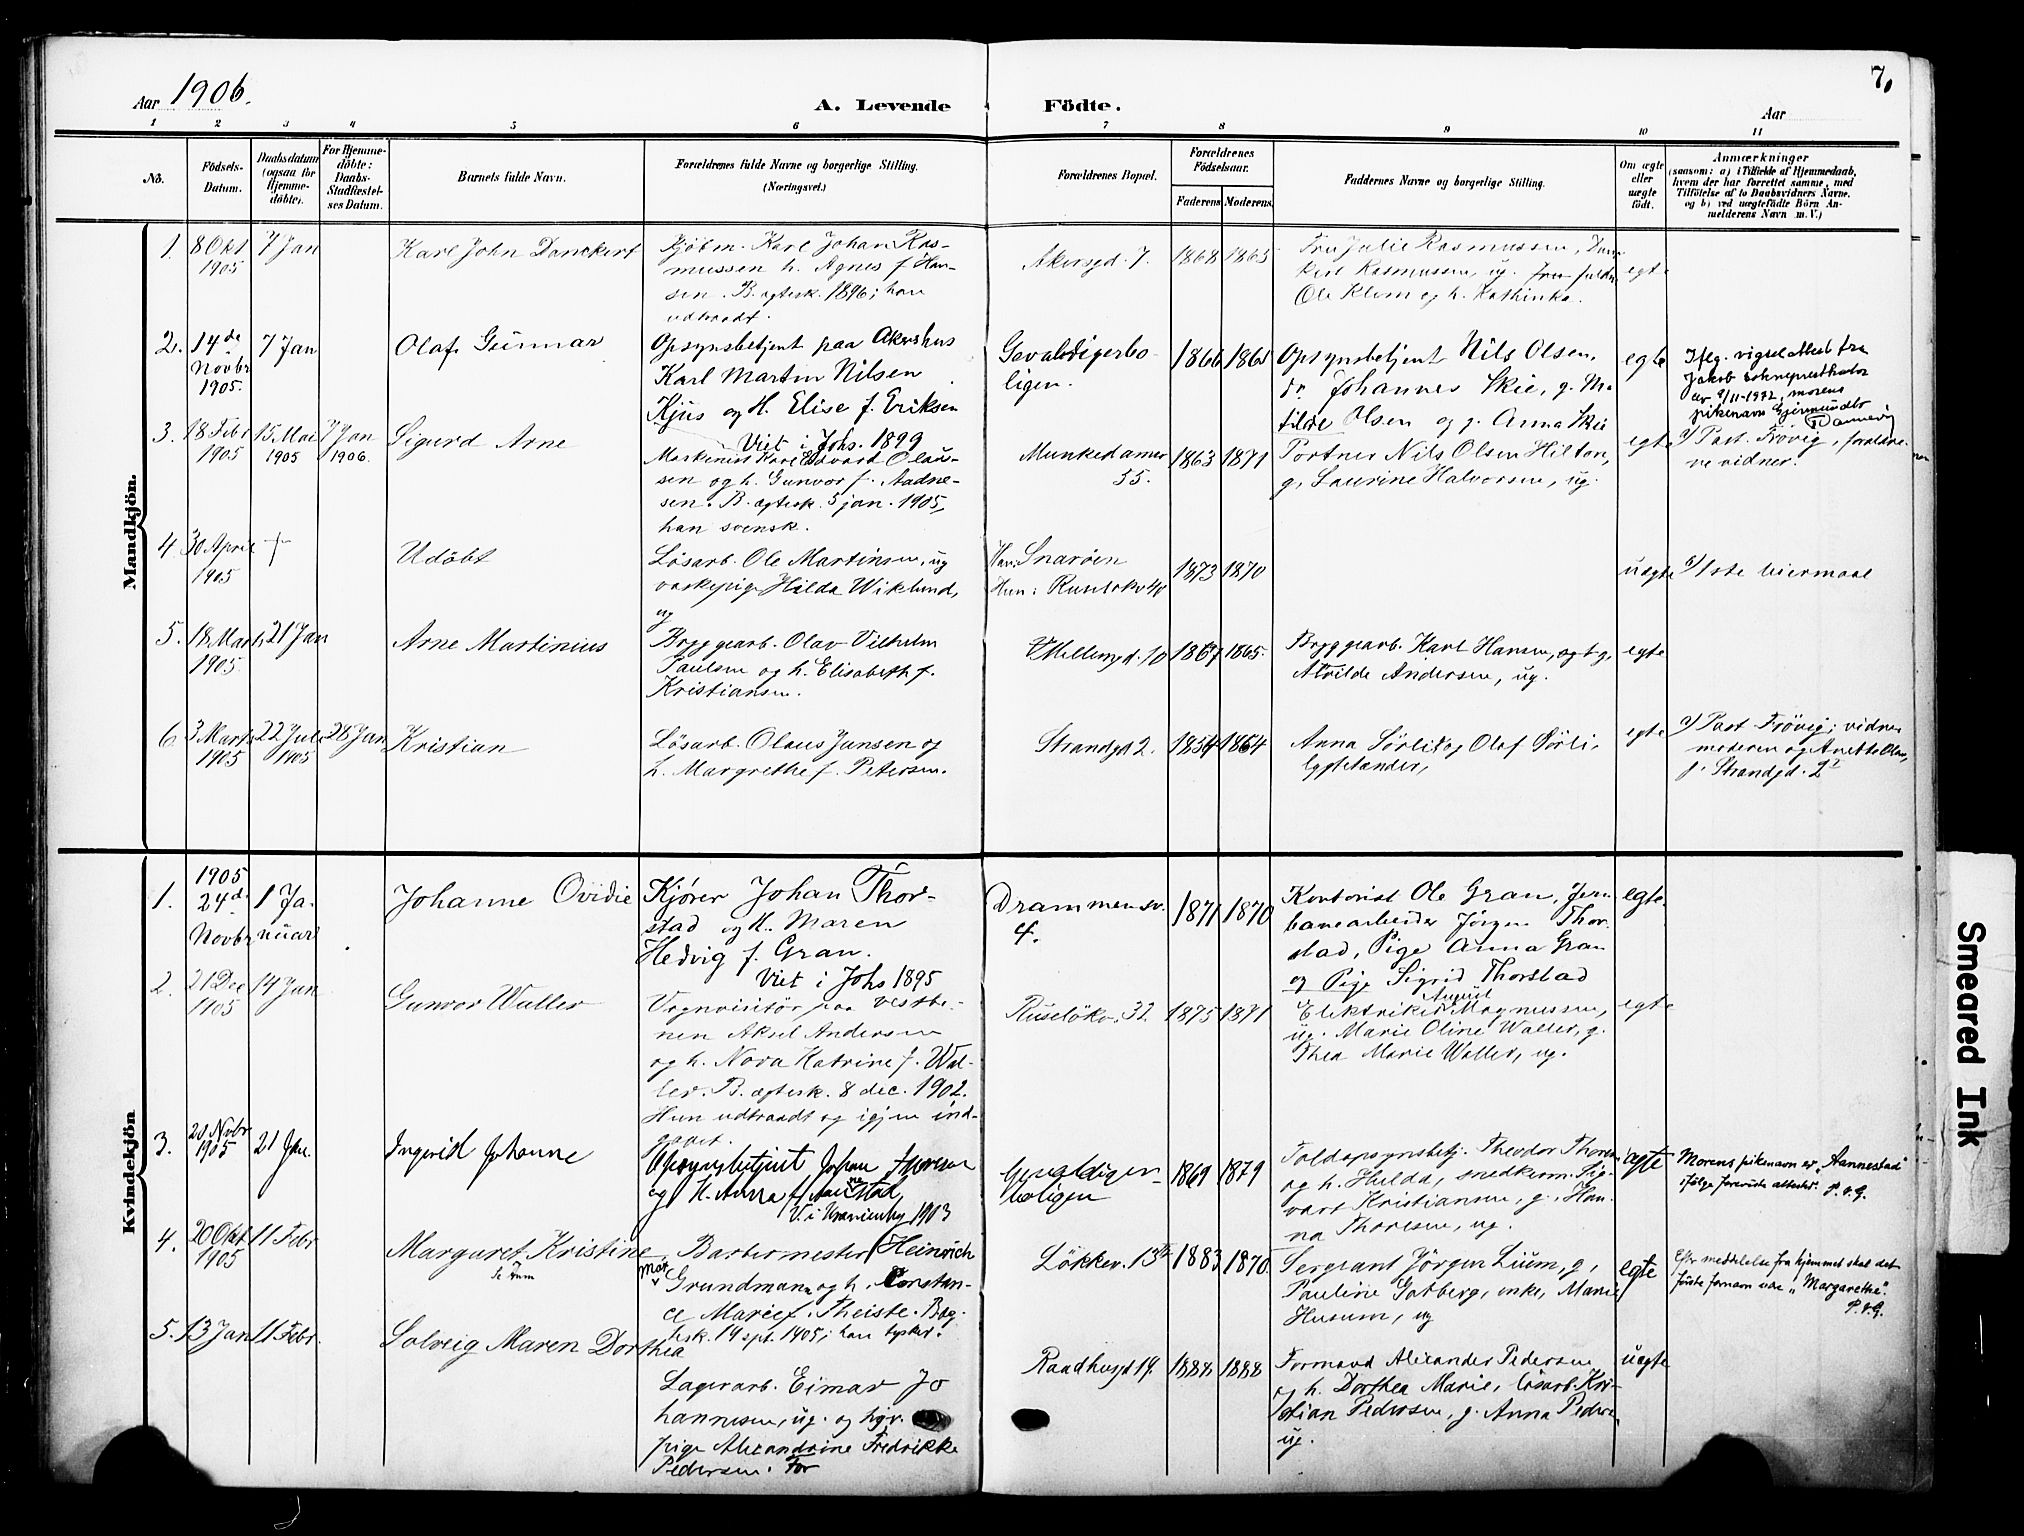 Aar 1906.
A. Levende Födte.
Aar
7.
1 2 3 4 5 6 7 8 9 10 11
No.
Födsels-
Datum.
Daabsdatum
(ogsaa for
Hjemme-
döbte).
For Hjemme-
döbte:
Daabs-
Stadfæstel-
ses Datum.
Barnets fulde Navn.
Forældrenes fulde Navne og borgerlige Stilling.
(Næringsvei.)
Forældrenes Bopæl.
Forældrenes
Födselsaar.
Faderens Moderens
Faddernes Navne og borgerlige Stilling.
Om ægte
eller
uægte
födt.
Anmærkninger
(saasom: a) i Tilfælde af Hjemmedaab,
hvem der har forrettet samme, med
Tilföielse af to Daabsvidners Navne,
og b) ved uægtefödte Börn An-
melderens Navn m. V.)
Mandkjön.
1. 8 Okt
1905
7 Jan
Karl John Danckert
Kjöbm. Karl Johan Ras-
mussen h. Agnes f. Han-
sen. B. ægtesk. 1896; han
udtraadt.
Akersgd. 7.
1868 1865
Fru Julie Rasmussen, Dan-
kert Rasmussen, ug.
Ole Klem og h. Kathinka.
egte
2. 14de
Novbr
1905.
7 Jan
Olaf Gunnar
Opsynsbetjent paa Akershus
Karl Martin Nilsen
Kjus og H. Elise f. Eriksen
Viet i Johs. 1899
Gevaldigerbo-
ligen.
1866 1865
Opsynsbetjent Nils Olsen,
do Johannes Skie, g. Ma-
tilde Olsen og g. Anna Skie
egte
Iflg. vigselattest fra
Jakob sokneprestkontor
av 9/11-1972, morens
pikenavn Gjermundbo
Dannevig
3. 18 Febr
1905
15 Mai
1905
7 Jan
1906.
Sigurd Arne
Maskinist Karl Edvard Olaus-
sen og h. Gunvor f. Aadne-
sen. B. ægtesk. 5 jan. 1905,
han svensk.
Munkedamsv
55.
1863 1871
Portner Nils Olsen Hilton,
g, Laurine Halvorsen, ug.
egte
a) Past. Frövig, foreldre-
ne vidner.
4. 30 April
1905
+
Udöbt
Lösarb. Ole Martinsen, ug
vaskepige Hilda Wiklund,
ug
Han: Snaröen
Hun: Ruselökv 40
1873 1870
uægte
a) 1ste leiermaal
5. 18 Marts
1905.
21 Jan
Arne Martinius
Bryggearb. Olav Vilhelm
Paulsen og h. Elisabeth f.
Kristiansen.
Mellemgd. 10
1867 1865.
Bryggearb. Karl Hansen, ogt g,
Alvilde Andersen, ug.
egte
6. 3 Marts
1905
22 Juli
1905
28 Jan
Kristian
Lösarb. Olaus Jansen og
h. Margrethe f. Petersen.
Strandgd 2.
1854 1864
Anna Sörli og Olaf Sörli,
egtefander,
egte
a) Past Frövig; vidner
moderen og Anette Olsen,
f. Strandgd. 2
Kvindekjön
1. 1905
24d.
Novbr
1 Ja-
nuar
Johanne Ovidie
Kjører Johan Thor-
stad og H. Maren
Hedvig f. Gran.
Viet i Johs 1895
Drammensv.
4.
1871 1870
Kontorist Ole Gran, Jern
banearbeider Jörgen Thor-
stad, Pige Anna Gran
og Pige Sigrid Thorstad
egte.
2. 21 Dec
1905
14 Jan
Gunvor Waller
Vognvisitör paa Vestba-
nen Aksel Andersen
og h. Nora Katrine f. Wal-
ler. B. ægtesk. 8 dec. 1902.
Hun udtraadt og igjen ind-
gaaet.
Ruselökv. 32.
1875 1871
Elektriker August Magnussen,
ug. Marie Oline Waller, g.
Thea Marie Waller, ug.
egte
3. 20 Novbr
1905
21 Jan.
Ingerid Johanne
Opsynsbetjent Johan Thoresen
og H. Anna f. Aanestad,
V. i Uranienbg 1903
Gevaldiger-
boligen
1869 1879
Toldopsynsbetj. Theodor Thoresen
og h. Hulda, snedkerm. Sig-
vart Kristiansen, g., Han-
na Thoresen, ug.
egte
Morens pikenavn er „Aannestad"
ifølge foreviste attester. P. v. G.
4. 20 Okt
1905
11 Febr
Margaret Kristine
se Anm
Barbermester Heinrich
Max Grundmann og h. Constan-
ce Marie f. Theiste. Borg.
ægtesk. 14 sept. 1905; han tysker.
Lökkev. 13
1883 1870.
Sergeant Jörgen Lium, g,
Pauline Gatberg, enke, Marie
Husum, ug
egte
Efter meddelelse fra hjemmet skal det
første fornavn være „Margarethe".
P. v. G.
5. 13 Jan
11 Febr.
Solveig Maren Dorthea
Lagerarb. Eimar Jo
hannesen, ug. og
pige Alexandrine Fredrikke
Pedersen.
Raadhusgd 19.
1888 1888
Formand Alexander Pedersen
og h. Dorthea Marie, lösarb. Kri-
stian Pedersen, g. Anna Pedersen
ug.
uegte
Smeared Ink